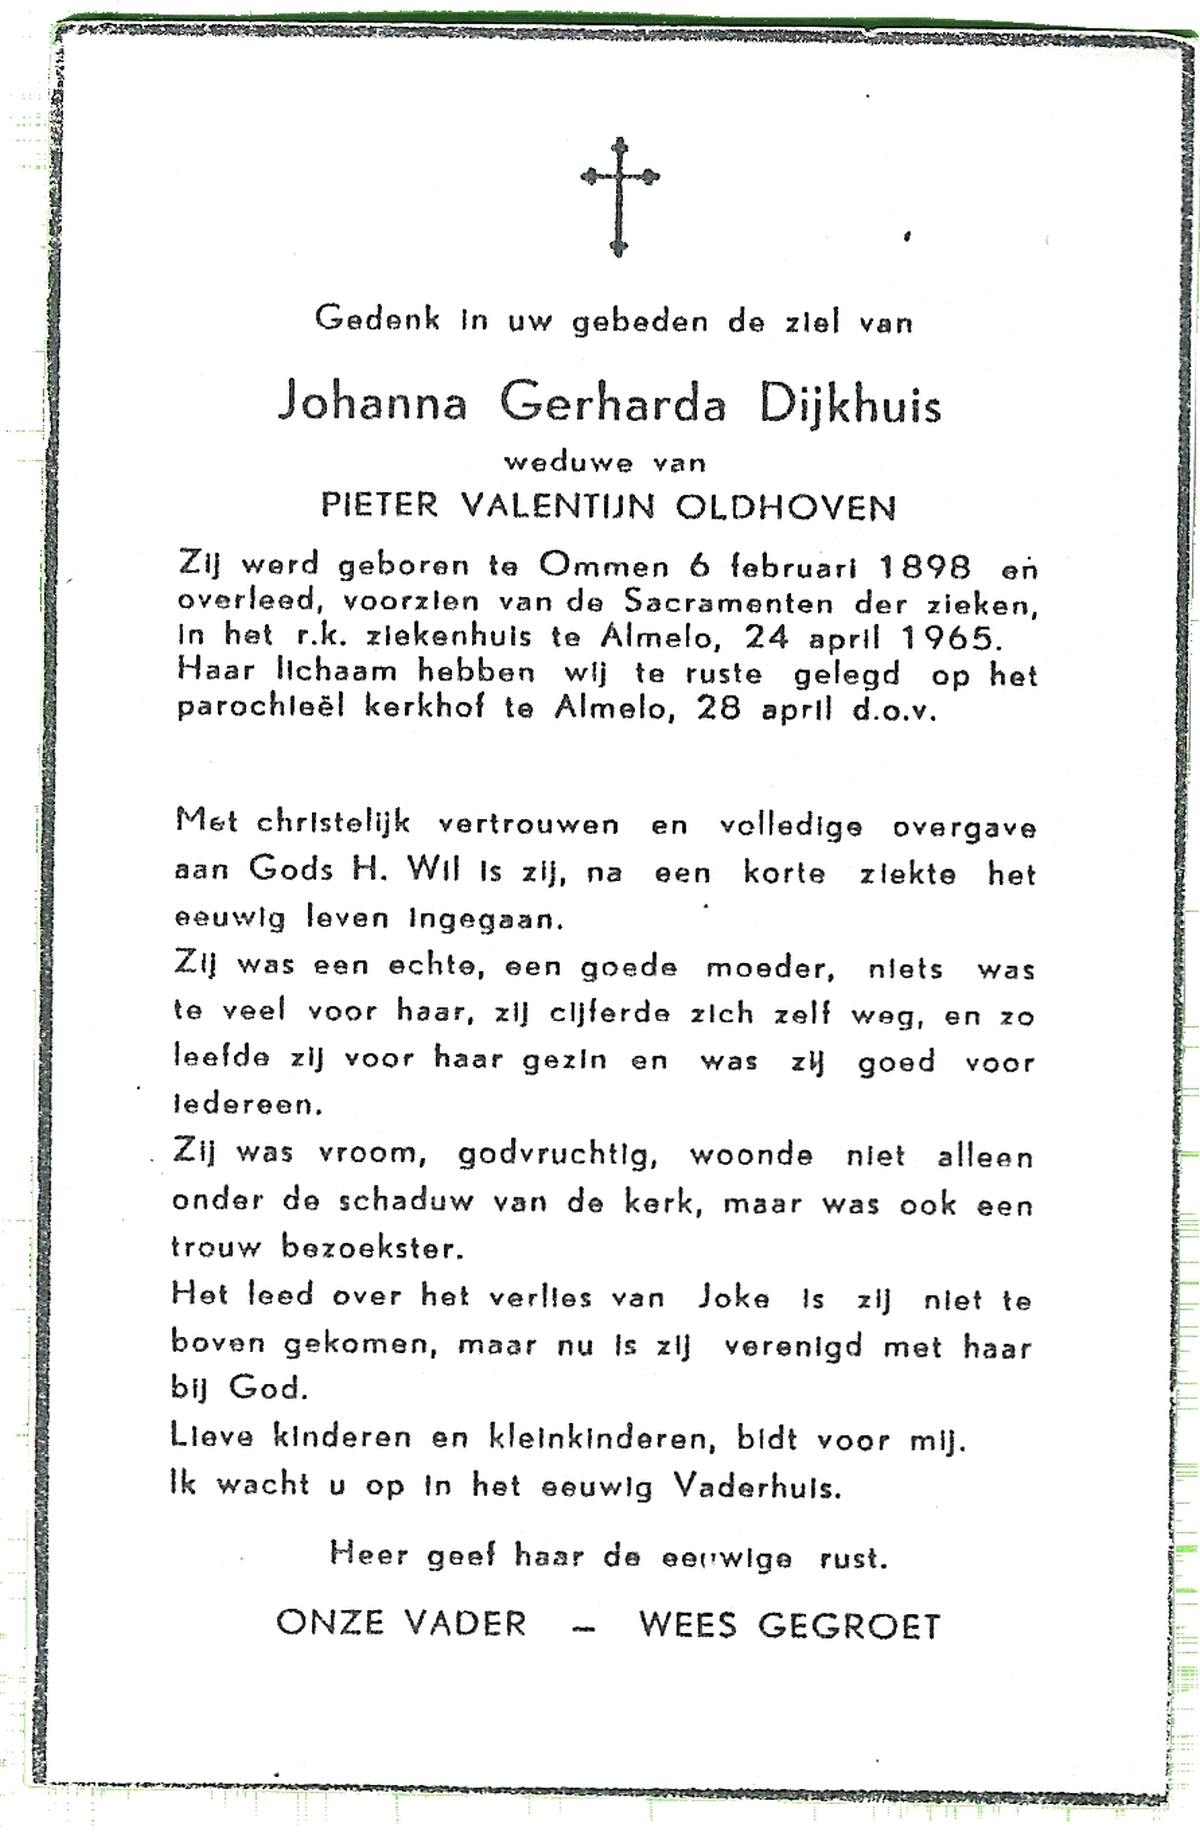 Gedenk in uw gebeden de ziel van
Johanna Gerharda Dijkhuis
weduwe van
PIETER VALENTIJN OLDHOVEN
Zij werd geboren te Ommen 6 februari 1898 en
overleed, voorzien van de Sacramenten der zieken,
in het r.k. ziekenhuis te Almelo, 24 april 1965.
Haar lichaam hebben wij te ruste gelegd op het
parochieël kerkhof te Almelo, 28 april d.o.v.
Met christelijk vertrouwen en volledige overgave
aan Gods H. Wil is zij, na een korte ziekte het
eeuwig leven ingegaan.
Zij was een echte, een goede moeder, niets was
te veel voor haar, zij cijferde zich zelf weg, en zo
leefde zij voor haar gezin en was zij goed voor
iedereen.
Zij was vroom, godvruchtig, woonde niet alleen
onder de schaduw van de kerk, maar was ook een
trouw bezoekster.
Het leed over het verlies van Joke is zij niet te
boven gekomen, maar nu is zij verenigd met haar
bij God.
Lieve kinderen en kleinkinderen, bidt voor mij.
Ik wacht u op in het eeuwig Vaderhuis.
Heer geef haar de eeuwige rust.
ONZE VADER – WEES GEGROET